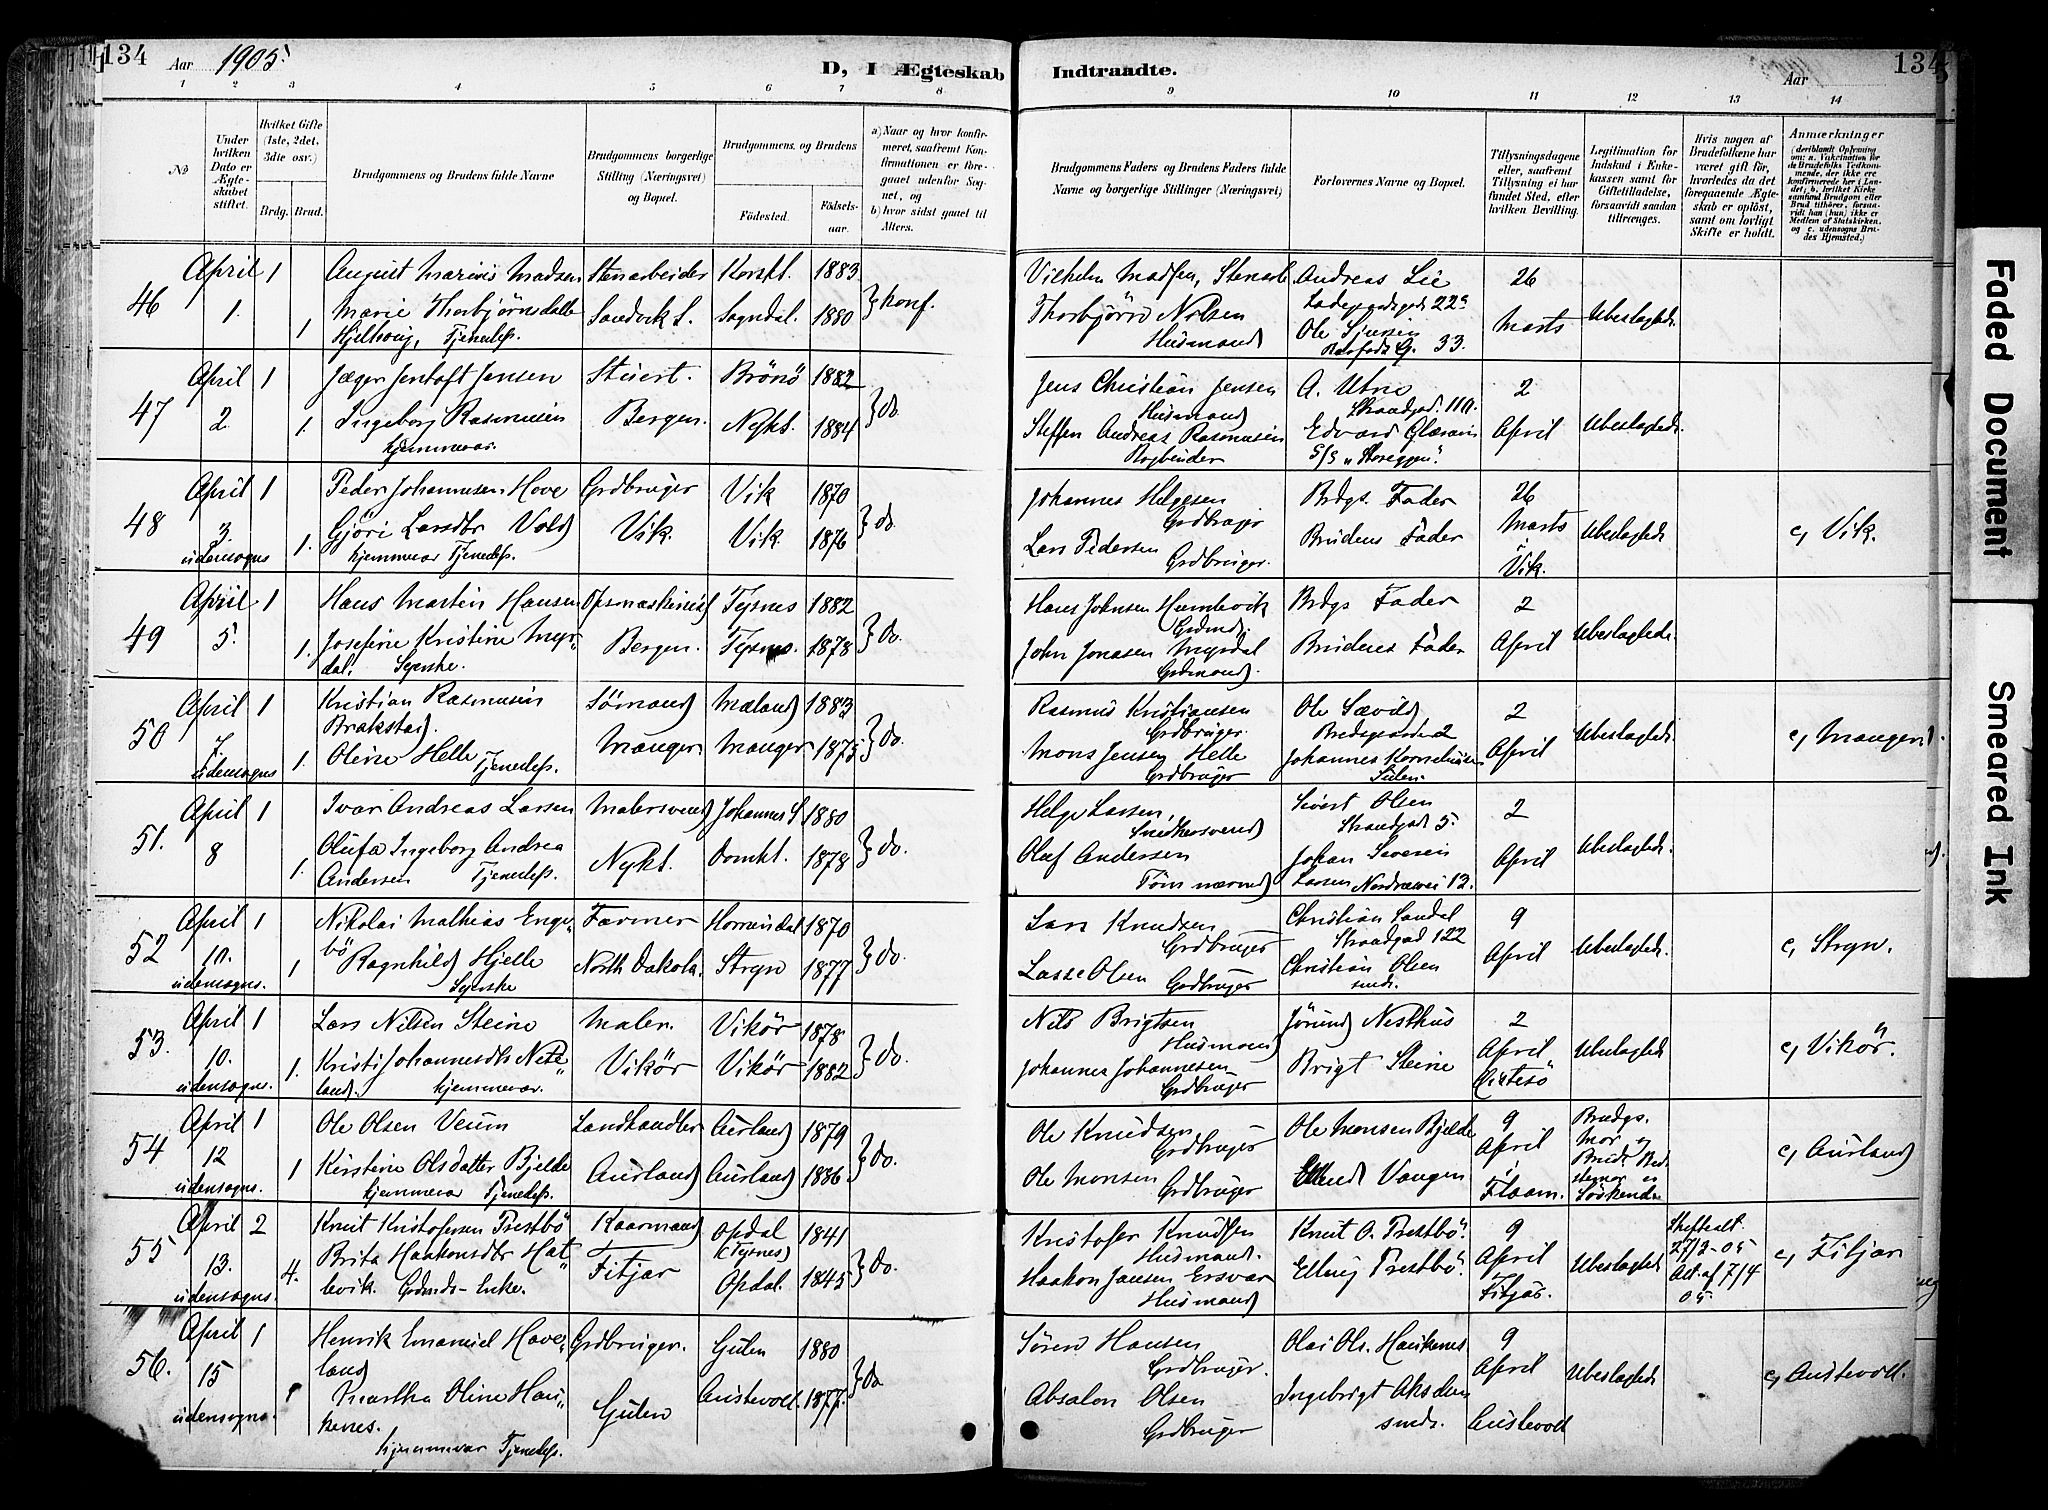 134
Aar 1905.
D, I Ægteskab
Indtraadte.
Aar
134
1 2 3 4 5 6 7 8 9 10 11 12 13 14
No
Under hvilken Dato er Ægteskabet stiftet.
Hvilket Gifte (1ste, 2det, 3die osv.)
Brdg. Brud.
Brudgommens og Brudens fulde Navne
Brudgommens borgerlige Stilling (Næringsvei) og Bopæl.
Brudgommens og Brudens
Födested.
Födselsaar.
a) Naar og hvor konfirmeret, saafremt Konfirmationen er foregaaet udenfor Sognet, og
b) hvor sidst gaaet til Alters.
Brudgommens Faders og Brudens Faders fulde Navne og borgerlige Stillinger (Næringsvei)
Forlovernes Navne og Bopæl.
Tillysningsdagene eller, saafremt Tillysning ei har fundet Sted, efter hvilken Bevilling.
Legitimation for Indskud i Enkekassen samt for Giftetilladelse, forsaavidt saadan tiltrænges.
Hvis nogen af Brudefolkene har været gift før, hvorledes da det foregaaende Ægteskab er oplöst, samt om lovligt Skifte er holdt.
Anmærkninger
46 April 1. 1 August Marius Madsen Stenarbeider Korskt. 1883
1 Marie Thorbjørnsdatter Sandvik S. Sogndal. 1880 konf.
Tjenestp.
Vilhelm Madsen, Stenarb. Andreas Lie 26
Ladegaardsgd. 22a
Thorbjörn Nilsen Ole Marts Ubeslægtede
Husmand 33.
47 April 2. 1 Jæger Jentoft Jensen Stuert. Brönö 1882
1. Ingeborg Rasmussen Bergen. Nykt. 1884 do.
hjemmevær.
Jens Christian Jensen A. Utne 2
Husmand Strandgd. 11a.
Steffen Andreas Rasmussen Edvard April Ubeslægtede.
Rogbinder S/S "Storeggen".
48 April 3. udensogns 1 Peder Johannesen Hove Grdbruger Vik 1870
1. Gjöri Larsdtr Vold Vik. Vik. 1876 do.
hjemmevær Tjenestp.
Johannes Helgesen Brdgs. Fader 26
Grdbruger Marts Ubeslægtede c, Vik.
Lars Pedersen Brudens Fader
Grdbruger. Vik.
49 April 5. 1 Hans Martin Hansen Opsmaskinist Tysnes 1882
1. Josefine Kristine Myrdal. Syerske. Bergen. Tysnes. 1878 do.
Hans Johnsen Humlevik Brdgs Fader 2
Grdmd.
John Jonasen Myrdal Brudens Fader April Ubeslægtede.
Grdmand.
50 April 7. udensogns 1 Kristian Rasmussen Sömand Mæland 1883
Brakstad.
1. Oline Helle Tjenestp. Manger. Manger 1875 do.
Rasmus Kristiansen Ole Sævild 2
Grdbruger. Bredsgaarden 2
Mons Jensen Helle Johannes Kornelius April Ubeslægtede. c, Manger.
Grdbruger
51. April 8 1 Ivar Andreas Larsen Malersvend Johannes S. 1880
Olufa Ingeborg Andrea Nykt. Domkt. 1878 do.
1. Andersen Tjenestp.
Helge Larsen, Sivert Olsen 2
Snedkersvend Strandgad 5.
Oluf Andersen Johan Severin April Ubeslægtede.
Tömmermd Larsen Nordnæsvei 13.
52 April 10. udensogns. 1 Nikolai Mathias Engebö Farmer Hornindal 1870
1 Ragnhild Hjelle North Dakota. Stryn 1877 do.
Syerske
Lars Knudsen Christian Sandal 9
Grdbruger Strandgad 122
Lasse Olsen Christian Olsen April Ubeslægtede. c, Stryn.
Grdbruger smed.
53. April 10. udensogns. 1 Lars Nilsen Steine Maler. Vikör 1878
1. Kristi Johannesdtr Neteland. hjemmevær. Vikör Vikör 1882 do.
Nils Brigtsen Jörund Nesthus 2
Husmand
Johannes Johannesen Brigt Steine April Ubeslægtede c, Vikör.
Grdbruger
54 April 12 udensogns. 1 Ole Olsen Veum Landhandler Aurland 1879
1 Kirstine Olsdatter Bjelde Aurland Aurland 1886 do.
hjemmevær Tjenestp.
Ole Knudsen Ole Monsen Bjelde 9 Brudgs. Mor og
Grdbruger April c, Aurland
Ole Monsen Vangen Flaam. Söskende
Grdbruger
55 April 13. udensogns. 2 Knut Kristofersen Prestbö Kaarmand Opdal (Tysnes) 1841
4. Brita Haakonsdtr Hatlevik. Grdmds-Enke. Fitjar Opdal. 1845 do.
Kristofer Knudsen Knut O. Prestbö. 9 Skifteatt. 27/2-05
Husmand. April Ubeslægtede Att. af 7/4 05. c, Fitjar
Haakon Jansen Ersvær Elling Prestbö. Fitjar.
Husmand
56. April 15 udensogns 1 Henrik Emanuel Haveland Grdbruger. Gulen 1880
1 Martha Oline Haukenes. Gulen Austevold. 1877. do
hjemmevær Tjenestp.
Sören Hansen Olai Ols. Haukenes 9
Grdbruger. April Ubeslægtede c, Austevoll.
Absalon Olsen Ingebrigt Austevold
Grdbruger smed.
Faded Document
Smeared Ink